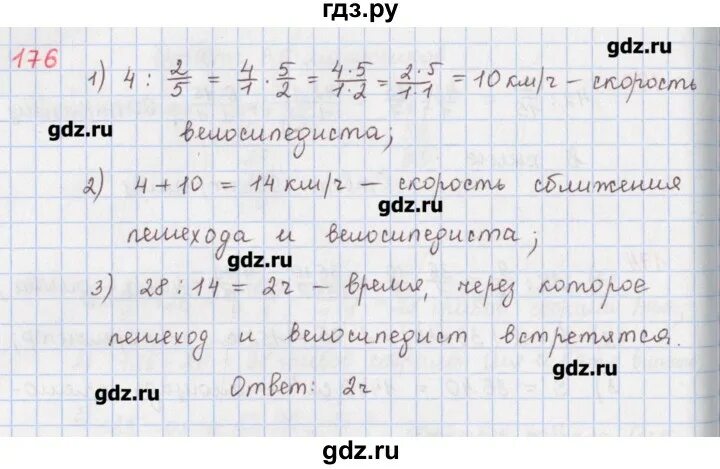 гдз.ру
176
gdz.ru
1) 4 : 2/5 = 4/1 · 5/2 = 4·5/1·2 = 2·5/1·1 = 10 км/ч – скорость
gdz.ru
велосипедиста;
2) 4 + 10 = 14 км/ч – скорость сближения
gdz.ru
пешехода и велосипедиста;
gdz.ru
3) 28 : 14 = 2ч – время, через которое
пешеход и велосипедист встретятся.
gdz.ru
gdz.ru
Ответ: 2ч
gdz.ru